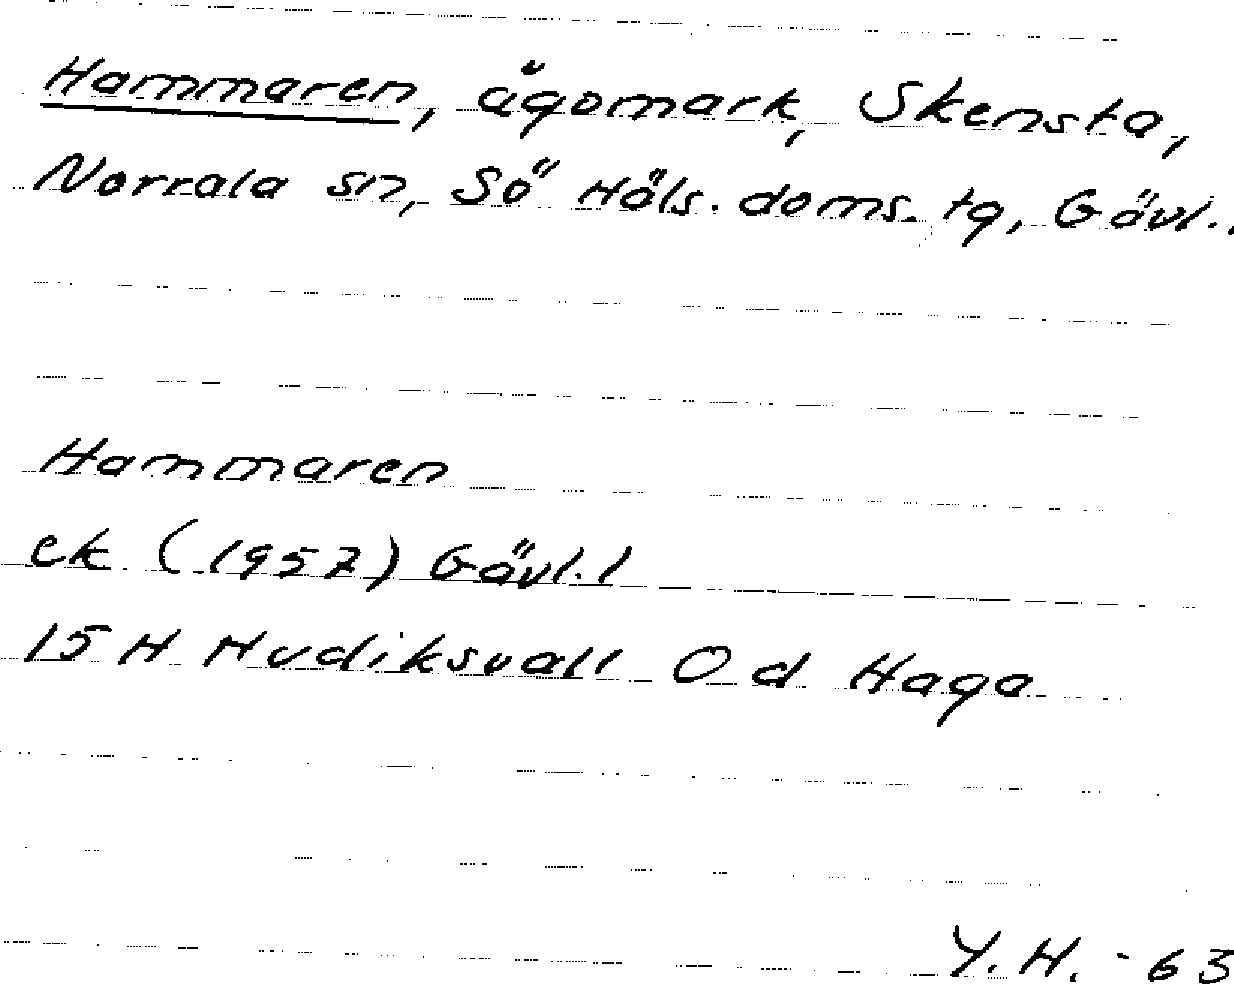 Hammaren, ägomark, Skensta,
Norrala sn, Sö Häls. doms. tg, Gävl..
Hammaren
ek (1957) Gävl. l
15 H Hudiksvall 0 d Haga
Y.H. -63